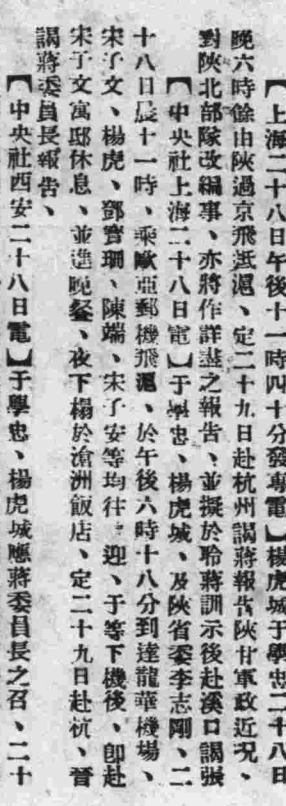 【上海二十八日午後十一時四十分發專電】楊虎城于學忠二十八日
晚六時餘由陝過京飛抵滬、定二十九日赴杭州謁蔣報告陝甘軍政近況、
對陝北部隊改編事、亦將作詳盡之報告、並擬於聆蔣訓示後赴溪口謁張
【中央社上海二十八日電】于學忠、楊虎城、及陝省委李志剛、二
十八日晨十一時、乘歐亞郵機飛滬、於午後六時十八分到達龍華機場、
宋子文、楊虎、鄧寶珊、陳端、宋子安等均往迎、于等下機後、卽赴
宋子文寓邸休息、並進晚餐、夜下榻於滄洲飯店、定二十九日赴杭、晉
謁蔣委員長報告、
【中央社西安二十八日電】于學忠、楊虎城應蔣委員長之召、二十